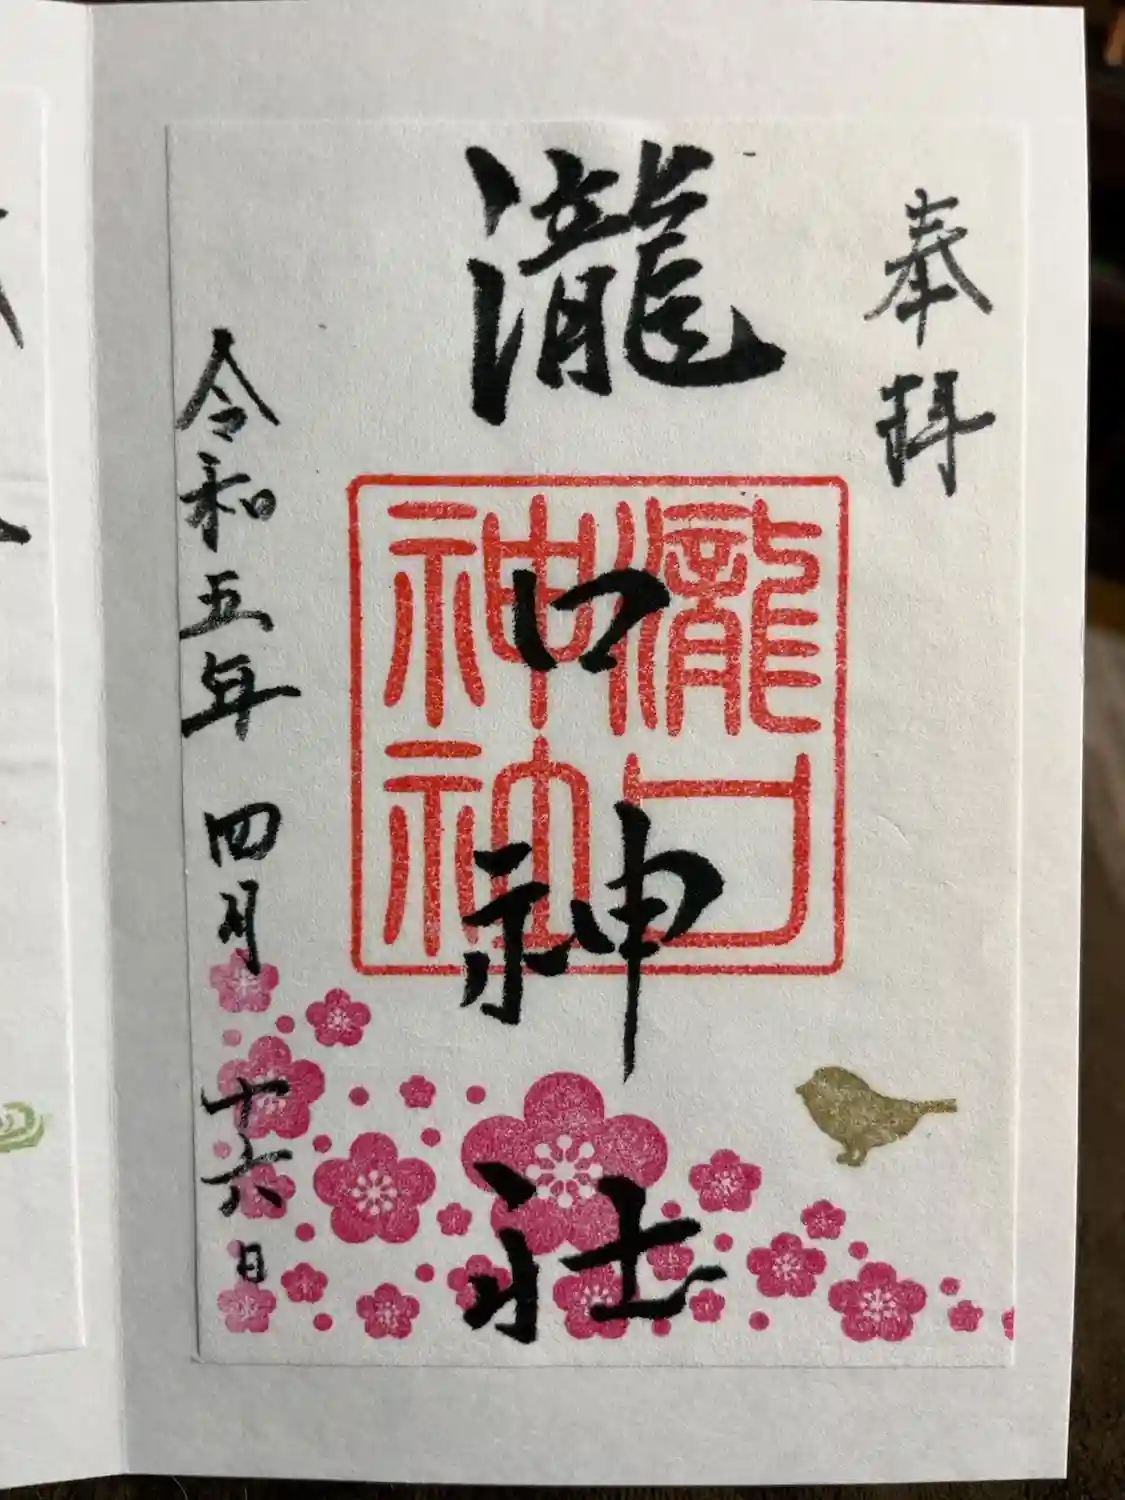 奉拝
瀧口神社
瀧口
神社
令和五年四月十六日